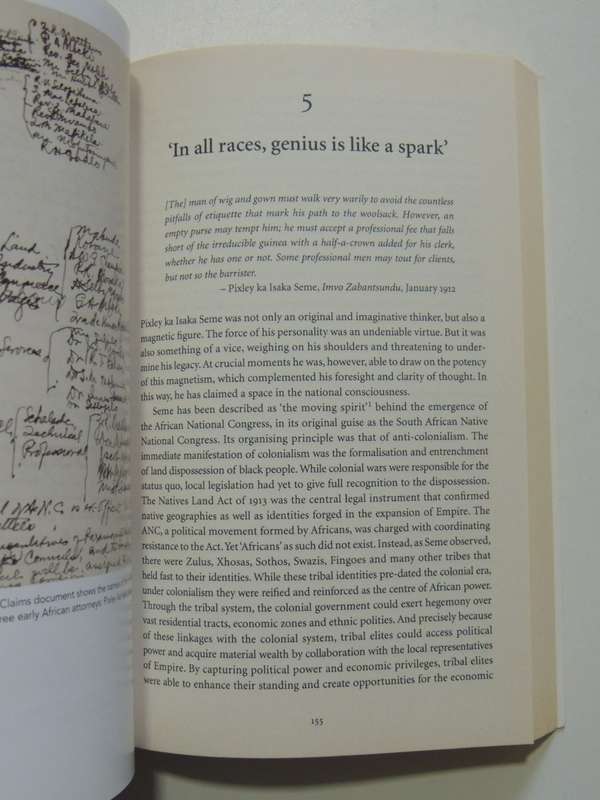 Land
Schools
Technical
Professional
Claims document shows the
ree early African attorneys Pixley
5
'In all races, genius is like a spark'
[The] man of wig and gown must walk very warily to avoid the countless
pitfalls of etiquette that mark his path to the woolsack. However, an
empty purse may tempt him; he must accept a professional fee that falls
short of the irreducible guinea with a half-a-crown added for his clerk,
whether he has one or not. Some professional men may tout for clients,
but not so the barrister.
– Pixley ka Isaka Seme, Imvo Zabantsundu, January 1912
Pixley ka Isaka Seme was not only an original and imaginative thinker, but also a
magnetic figure. The force of his personality was an undeniable virtue. But it was
also something of a vice, weighing on his shoulders and threatening to under-
mine his legacy. At crucial moments he was, however, able to draw on the potency
of this magnetism, which complemented his foresight and clarity of thought. In
this way, he has claimed a space in the national consciousness.
Seme has been described as 'the moving spirit'1 behind the emergence of
the African National Congress, in its original guise as the South African Native
National Congress. Its organising principle was that of anti-colonialism. The
immediate manifestation of colonialism was the formalisation and entrenchment
of land dispossession of black people. While colonial wars were responsible for the
status quo, local legislation had yet to give full recognition to the dispossession.
The Natives Land Act of 1913 was the central legal instrument that confirmed
native geographies as well as identities forged in the expansion of Empire. The
ANC, a political movement formed by Africans, was charged with coordinating
resistance to the Act. Yet 'Africans' as such did not exist. Instead, as Seme observed,
there were Zulus, Xhosas, Sothos, Swazis, Fingoes and many other tribes that
held fast to their identities. While these tribal identities pre-dated the colonial era,
under colonialism they were reified and reinforced as the centre of African power.
Through the tribal system, the colonial government could exert hegemony over
vast residential tracts, economic zones and ethnic polities. And precisely because
of these linkages with the colonial system, tribal elites could access political
power and acquire material wealth by collaboration with the local representatives
of Empire. By capturing political power and economic privileges, tribal elites
were able to enhance their standing and create opportunities for the economic
155